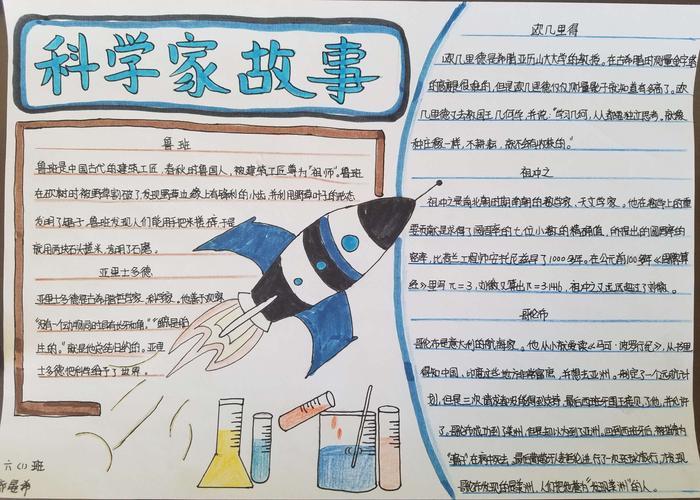 科学家故事
鲁班
鲁班是中国古代的建筑工匠,春秋时鲁国人,被建筑工匠尊为"祖师"。鲁班
在砍树时被野草割破了发现野草边缘上有锋利的小齿,并利用野草叶子的形态
发明了锯子,鲁班发现人们能用手把米搓碎于是
就用两块石头搓米,发明了石磨。
亚里士多德
亚里士多德是古希腊哲学家,科学家。他善于观察
"没有一个动物同时具有长牙和角。"
止的。"就是他总结归纳的。亚里
士多德他
欧几里得
欧几里德是希腊亚历山大大学的教授。在古希腊时测量金字塔
的高度是很难的,但是欧几里德仅仅测量影子就知道有多高了。欧
几里德又去教国王几何学,并说:"学习几何,人人都要独立思考。就像
种庄稼一样,不耕耘,就不会有收获的。"
祖冲之
祖冲之是南北朝时期南朝的数学家,天文学家。他在数学上的重
要贡献是求得了圆周率的七位小数的精确值,所提出的圆周率的
密率,比荷兰工程师安托尼兹早了1000多年。在公元前100多年《周髀算
经》里写π=3,刘徽又算出π=3.146,祖冲之又远远超过了刘徽。
哥伦布
哥伦布是意大利的航海家。他从小就爱读《马可·波罗行纪》,从书里
得知中国,印度这些地方非常富庶,并想去亚洲。制定了一个远航计
划,但是三次请求都没能得到支持,最后西班牙国王看见了他,并允许
了。哥伦布成功到了美洲,但是却以为到了亚洲,回到西班牙后,被指为
哥伦布发现的是美洲,人们把他誉为"发现美洲"的人。
六(1)班